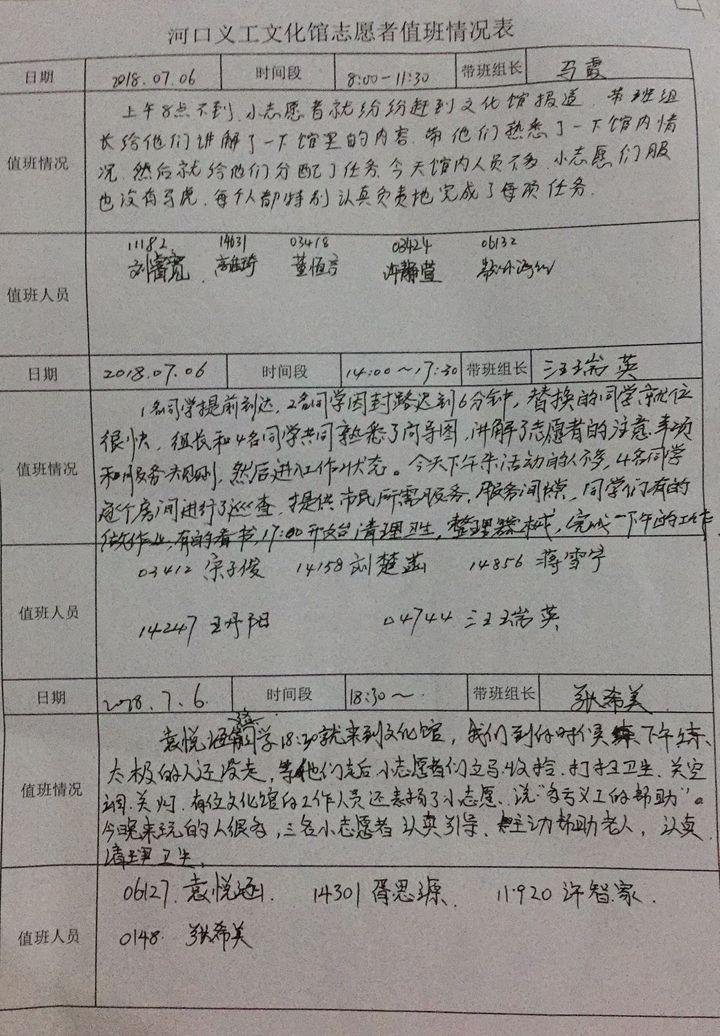 河口义工文化馆志愿者值班情况表
日期 2018.07.06 时间段 8:00-11:30 带班组长 马霞
上午8点不到,小志愿者就纷纷赶到文化馆报道,带班组
长给他们讲解了一下馆里的内容,带他们熟悉了一下馆内情
值班情况
况,然后就给他们分配了任务,今天馆内人员不多,小志愿们服
也没有马虎,每个人都特别认真负责地完成了每项任务.
11182 14631 03418 03424 06132
值班人员
董恒言 许静萱
日期 2018.07.06 时间段 14:00~17:30 带班组长 汪瑞英
1名同学提前到达,2名同学因封路迟到6分钟,替换的同学就位
很快,组长和4名同学共同熟悉了向导图,讲解了志愿者的注意事项
值班情况
和服务规则,然后进入工作状态。今天下午来活动的人不多,4名同学
逐个房间进行了巡查,提供市民所需服务,服务间隙,同学们有的
做作业,有的看书,17:00开始清理卫生,整理器械,完成一下午的工作.
03412 宋子俊 14158 刘楚涵 14856 蒋雪宇
值班人员
14247 王丹阳 04744 汪瑞英
日期 2018.7.6. 时间段 18:30~ 带班组长 张希美
袁悦涵同学18:30就来到文化馆,我们到的时候下午练
太极的人还没走,等他们走后小志愿者们立马收拾.打扫卫生.关空
值班情况
调.关灯.有位文化馆的工作人员还表扬了小志愿、说“多亏义工的帮助”。
今晚来玩的人很多,三名小志愿者认真引导、主动帮助老人,认真
清理卫生.
06127.袁悦涵. 14301 胥思源. 11920 许智家.
值班人员
0148. 张希美